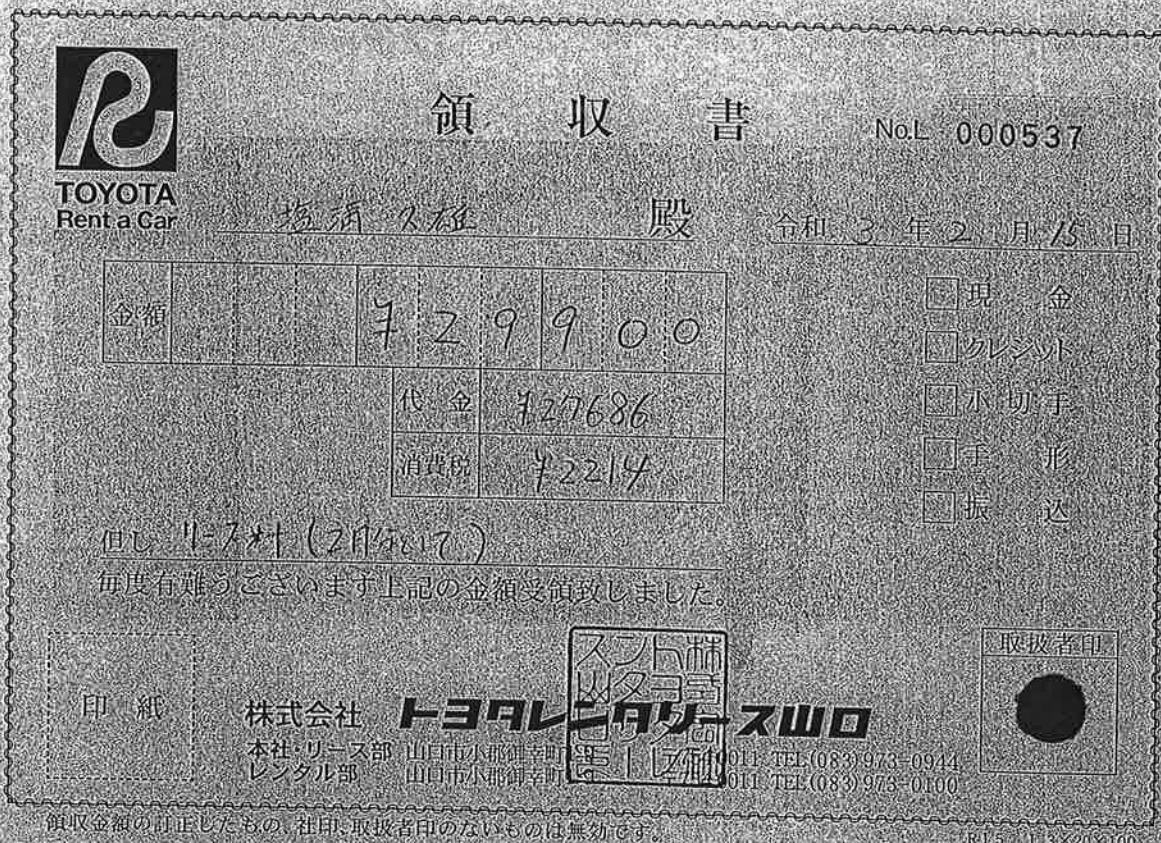 領収書
No.L 000537
TOYOTA
Rent a Car
久雄 殿
令和 3 年 2 月 15 日
金額 ¥29900
代金 ¥27686
消費税 ¥2214
現金
クレジット
小切手
手形
振込
但し リース料 (2月分として)
毎度有難うございます上記の金額受領致しました。
印紙
取扱者印
株式会社 トヨタレンタリース山口
本社・リース部 山口市小郡御幸町 TEL(083)973-0944
レンタル部 山口市小郡御幸町 TEL(083)973-0100
領収金額の訂正したもの、社印、取扱者印のないものは無効です。